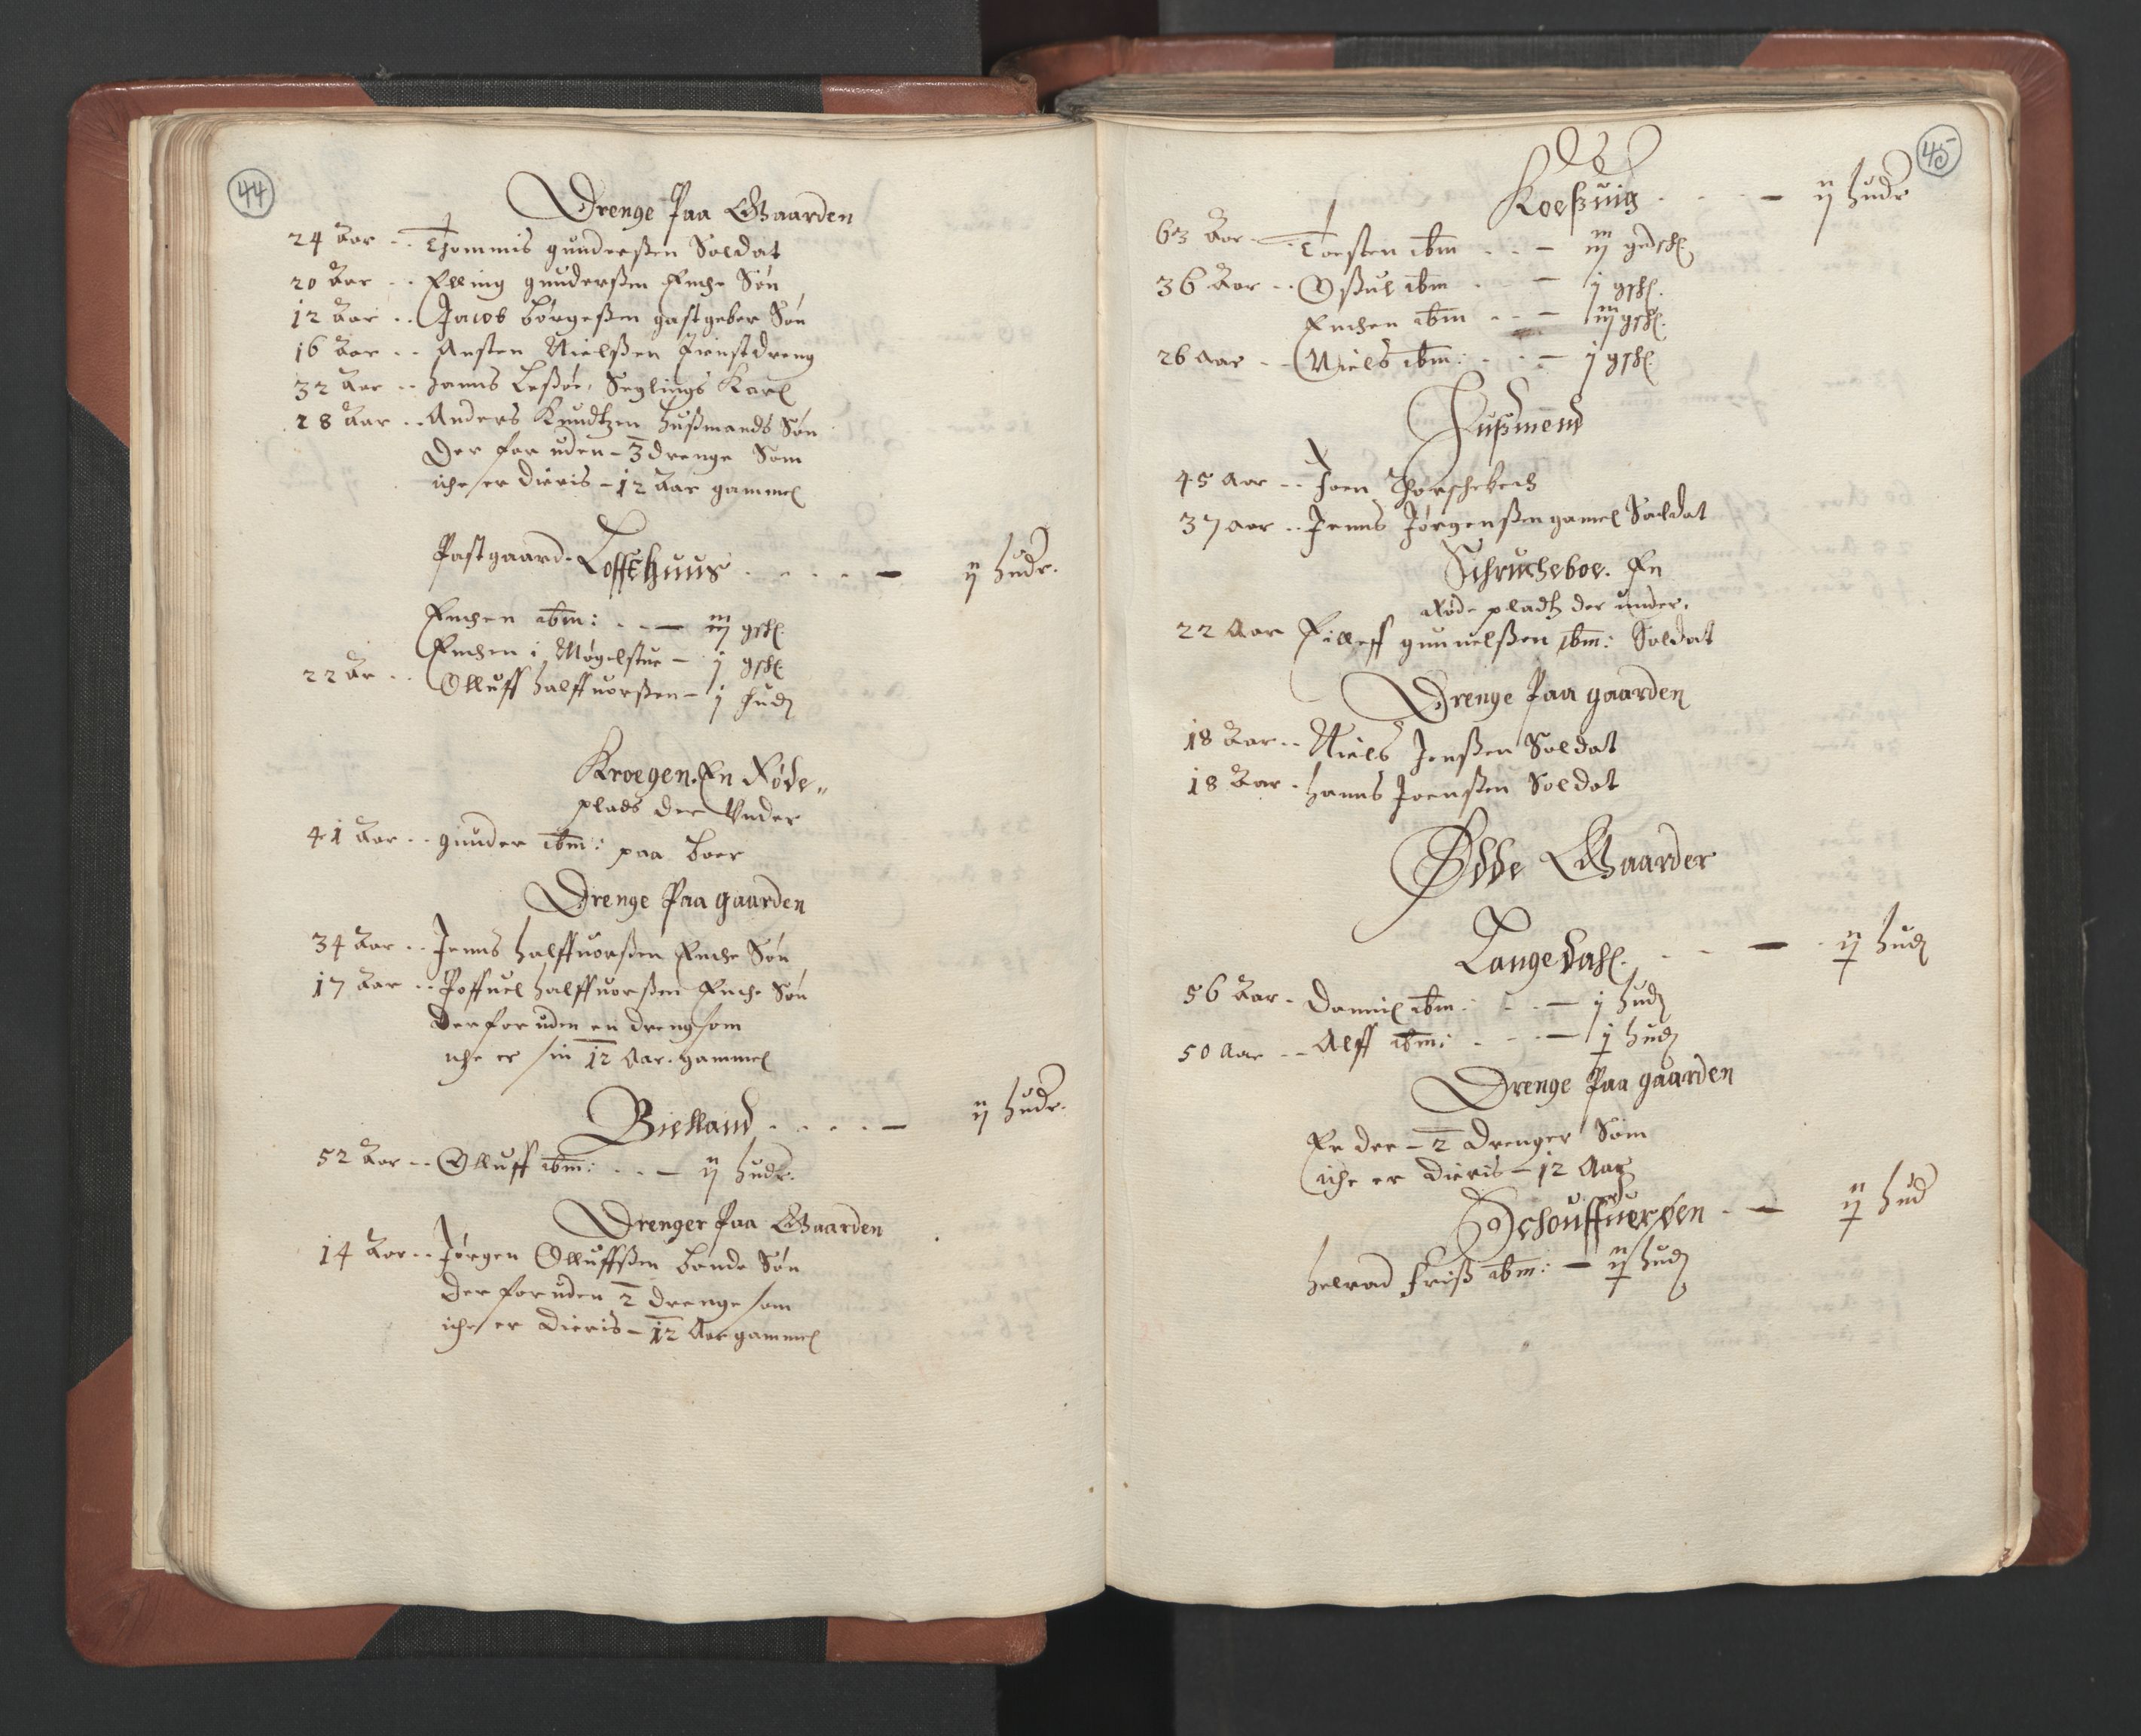 44
Drenge Paa Gaarden
24 Aar .. Thommis gunderßen Soldat
20 Aar .. Elling gunderßen Enche Søn
12 Aar .. Jacob börgeßen gastgeber Søn
16 Aar .. Austen Nielßen Tienstdreng
32 Aar .. hanns Leßøe, Seglings Karl
28 Aar .. Anders Knudtzen hußmands Søn
Der for uden - 3 drenge Som
iche er Dieris - 12 Aar gammel
Pastgaard. Loffthuus . . . . . — ij hudr.
Enchen ibm: . . — iij gsk.
Enchen i Møgelstue — j gsk
22 Ar .. Olluff halffuorßen — j hud
Kroegen. En Øde„
plads der Under
41 Aar .. gunder ibm: paa boer
Drenge Paa gaarden
34 Aar .. Jenns halffuorßen Enche Søn
17 Aar .. Poffuel halffuorßen Enche Søn
Der for uden en dreng som
iche er sin 12 Aar. gammel
Bielland . . . . — ij hudr.
52 Aar .. Olluff ibm: . . . — ij hudr.
Drenger Paa Gaarden
14 Aar .. Jørgen Olluffßen bonde Søn
Der for uden 2 drenge som
iche er Dieris - 12 Aar gammel
45
Koeßuig . . . — ij hudr
63 Aar .. Torsten ibm . . — iij gedsk.
36 Aar .. Oßul ibm . . — j gsk.
Enchen ibm . . — iij gsk.
26 Aar .. Niels ibm: . . — j gsk.
Hußmend
45 Aar .. Joen
37 Aar .. Jenns Jørgenßen gamel Saldat
Schrucheboe. En
Øde pladtz der under.
22 Aar Eilleff gunuelßen ibm: Soldat
Drenge Paa gaarden
18 Aar .. Niels Jenßen Soldat
18 Aar . hanns Joenßen Soldat
Ødde Gaarder
Langedahl. . . — . ij hud
56 Aar . Daniel ibm: . . — j hud
50 Aar .. Alff ibm: . . . — j hud
Drenge Paa gaarden
Er der - 2 Drenger Som
iche er Dieris - 12 Aar
Schouffuerßen . — ij hud
helrad Friß ibm: — ij hud